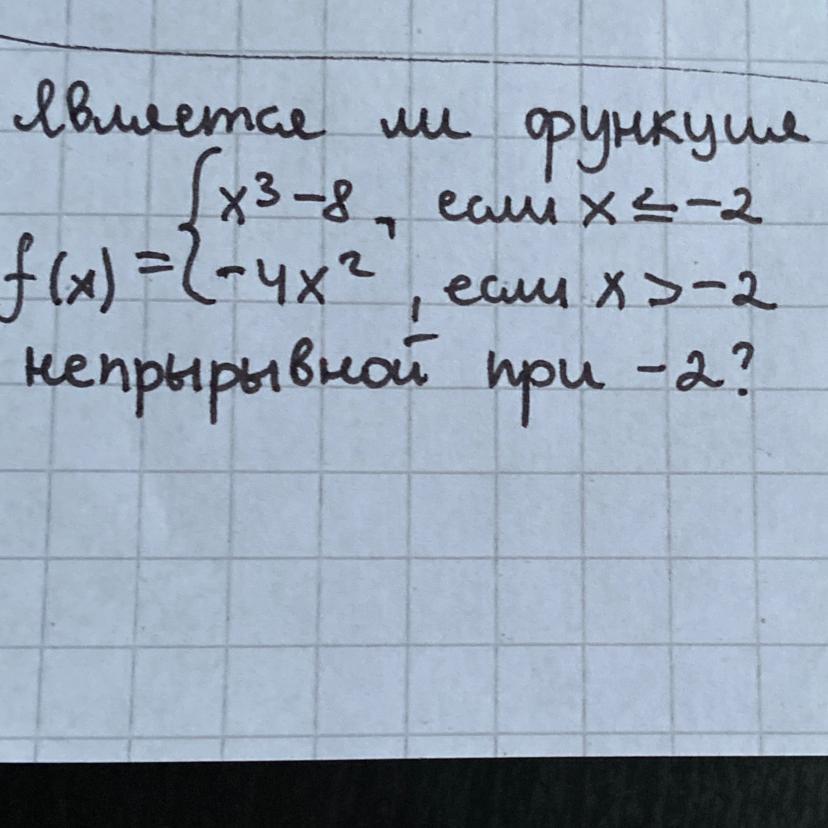 Является ли функция
f(x) = { x³ - 8, если x ≤ -2
-4x², если x > -2
непрырывной при -2?